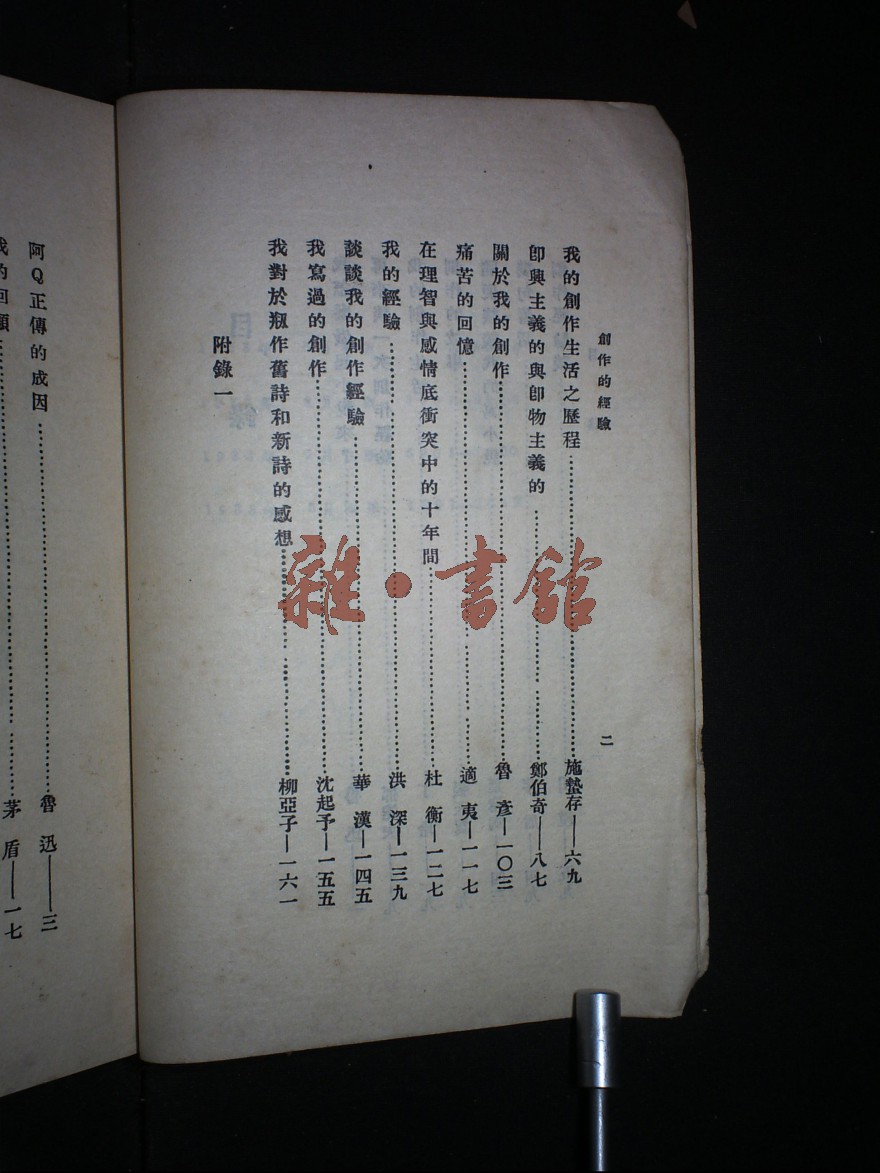 創作的經驗
二
我的創作生活之歷程……施蟄存——六九
卽興主義的與卽物主義的……鄭伯奇——八七
關於我的創作……魯彥——一〇三
痛苦的回憶……適夷——一一七
在理智與感情底衝突中的十年間……杜衡——一二七
我的經驗……洪深——一三九
談談我的創作經驗……華漢——一四五
我寫過的創作……沈起予——一五五
我對於剏作舊詩和新詩的感想……柳亞子——一六一
附錄一
阿Q正傳的成因……魯迅——三
我的回顧……茅盾——一七
雜·書館